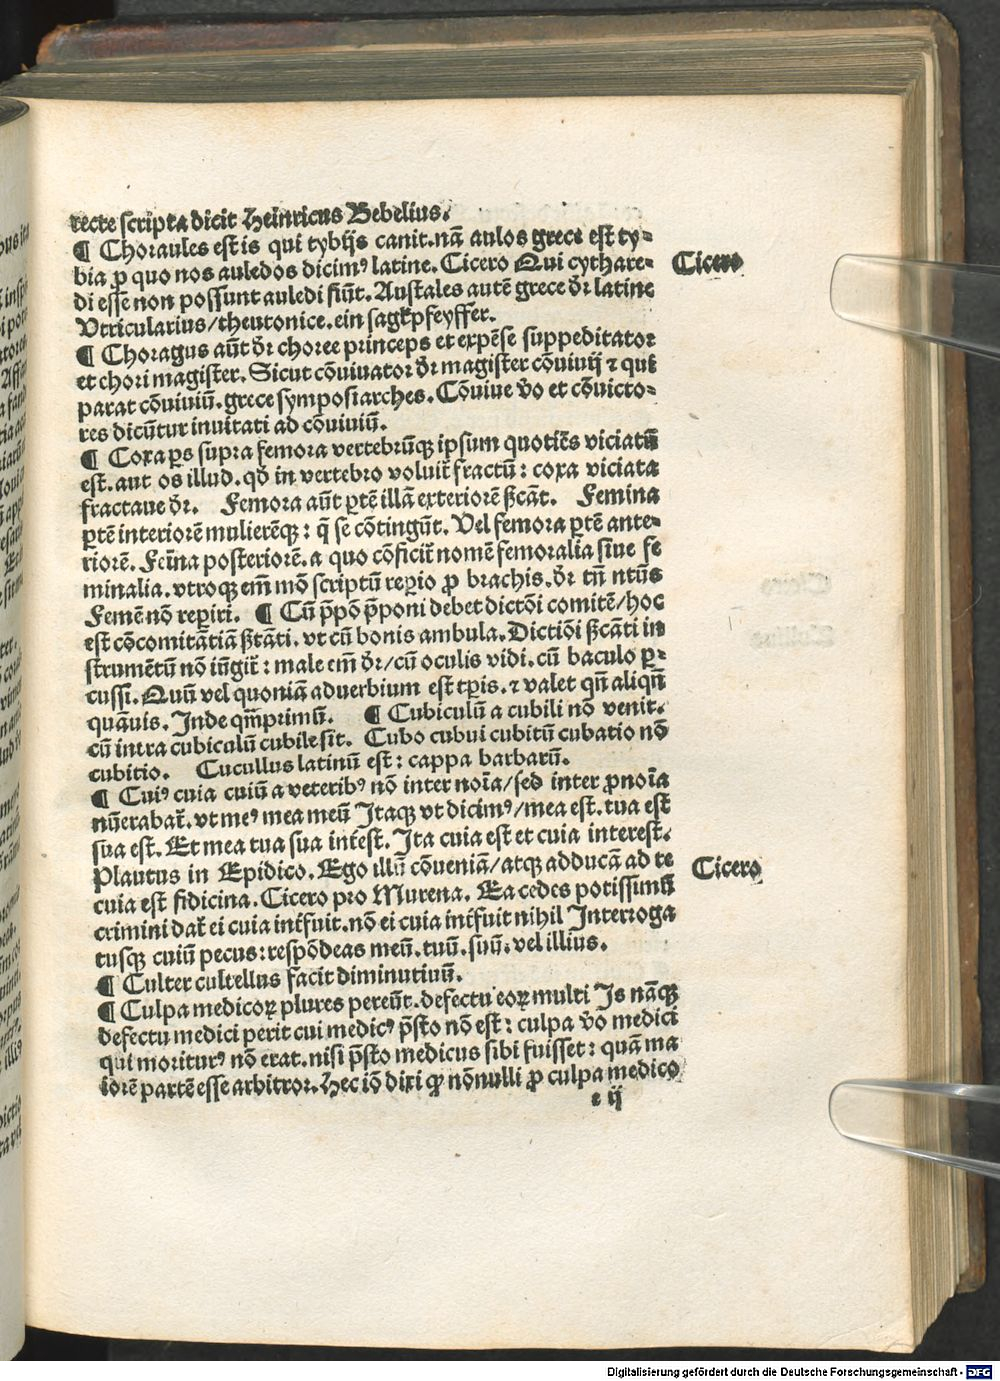 recte scripta dicit Heinricus Bebelius.
¶ Choraules est is qui tybijs canit. nã aulos grece est ty⸗
bia ꝑ quo nos auledos dicimꝰ latine. Cicero Qui cythare⸗
di esse non possunt auledi fiũt. Austales autẽ grece dr̃ latine
Vtricularius/theutonice. ein sagkpfeyffer.
¶ Choragus aũt dr̃ choree princeps et expẽse suppeditator
et chori magister. Sicut cõuiuator dr̃ magister cõuiuij ⁊ qui
parat cõuiuiũ. grece symposiarches. Cõuiue ṽo et cõuicto⸗
res dicũtur inuitati ad cõuiuiũ.
¶ Coxa ꝑs supra femora vertebrũqꝫ ipsum quotiẽs viciatũ
est. aut os illud. qd̃ in vertebro voluit̃ fractũ: coxa viciata
fractaue dr̃. Femora aũt ꝑtẽ illã exteriorẽ ſcãt. Femina
ꝑtẽ interiorẽ mulierẽqꝫ: q̃ se cõtingũt. Vel femora ꝑtẽ ante⸗
riorẽ. Feĩna posteriorẽ. a quo cõficit̃ nomẽ femoralia siue fe
minalia. vtroqꝫ em̃ mõ scriptũ reꝑio ꝓ brachis. dr̃ tñ ntũs
Femẽ nõ reꝑiri. ¶ Cũ p̃põ p̃poni debet dictõi comitẽ/hoc
est cõcomitãtiã ſtãti. vt cũ bonis ambula. Dictiõi ſcãti in
strumẽtũ nõ iũgit̃: male em̃ dr̃/cũ oculis vidi. cũ baculo ꝑ⸗
cussi. Quũ vel quoniã aduerbium est tꝑis. ⁊ valet qñ aliqñ
quãuis. Inde qm̃primũ. ¶ Cubiculũ a cubili nõ venit.
cũ intra cubiculũ cubile sit. Cubo cubui cubitũ cubatio nõ
cubitio. Cucullus latinũ est: cappa barbarũ.
¶ Cuiꝰ cuia cuiũ a veteribꝰ nõ inter noĩa/sed inter ꝓnoĩa
nũerabat̃. vt meꝰ mea meũ Itaqꝫ vt dicimꝰ/mea est. tua est
sua est. Et mea tua sua int̃est. Ita cuia est et cuia interest.
Plautus in Epidico. Ego illũ cõueniã/atqꝫ adducã ad te
cuia est fidicina. Cicero pro Murena. Ea cedes potissimũ
crimini dat̃ ei cuia int̃fuit. nõ ei cuia int̃fuit nihil Interroga
tusqꝫ cuiũ pecus: respõdeas meũ. tuũ. suũ. vel illius.
¶ Culter cultellus facit diminutiuũ.
¶ Culpa medicoꝝ plures pereũt. defectu eoꝝ multi Is nãqꝫ
defectu medici perit cui medicꝰ p̃sto nõ est: culpa ṽo medici
qui moriturꝰ nõ erat. nisi p̃sto medicus sibi fuisset: quã ma
iorẽ partẽ esse arbitror. Hec iõ dixi qꝛ nõnulli ꝓ culpa medico
e ij
Cicero
Cicero
Digitalisierung gefördert durch die Deutsche Forschungsgemeinschaft - DFG